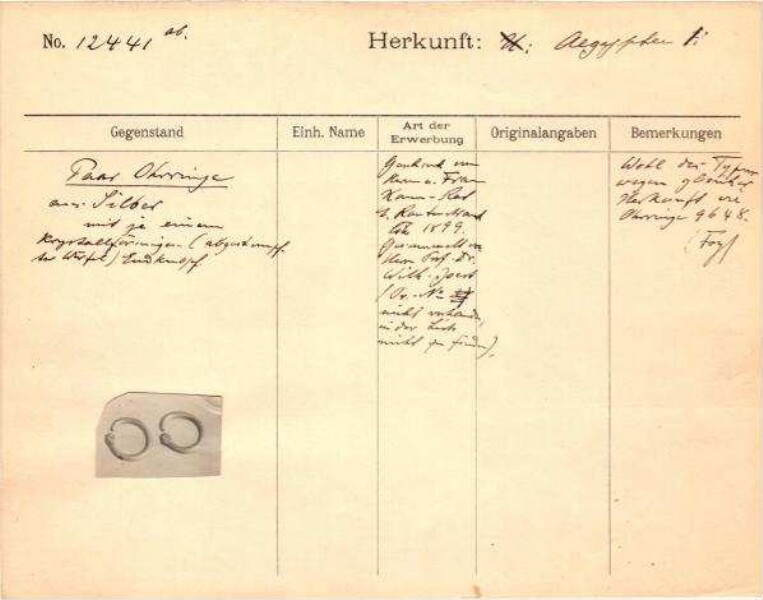 No. 12441 ab.
Herkunft: Aegypten
Gegenstand
Einh. Name
Art der Erwerbung
Originalangaben
Bemerkungen
Paar Ohrringe
aus Silber
mit je einem
krystallförmigen (abgestumpf-
ter Würfel) Endknopf
Geschenk von
Herrn u. Frau
Rautenstrauch
1899.
Gesammelt von
Herrn Prof. Dr.
Wilh. Joest
(Or.-No
nicht vorhanden,
in der Liste
nicht zu finden).
Wohl des Typus
wegen gleicher
Herkunft wie
Ohrringe 9648.
(Foy)